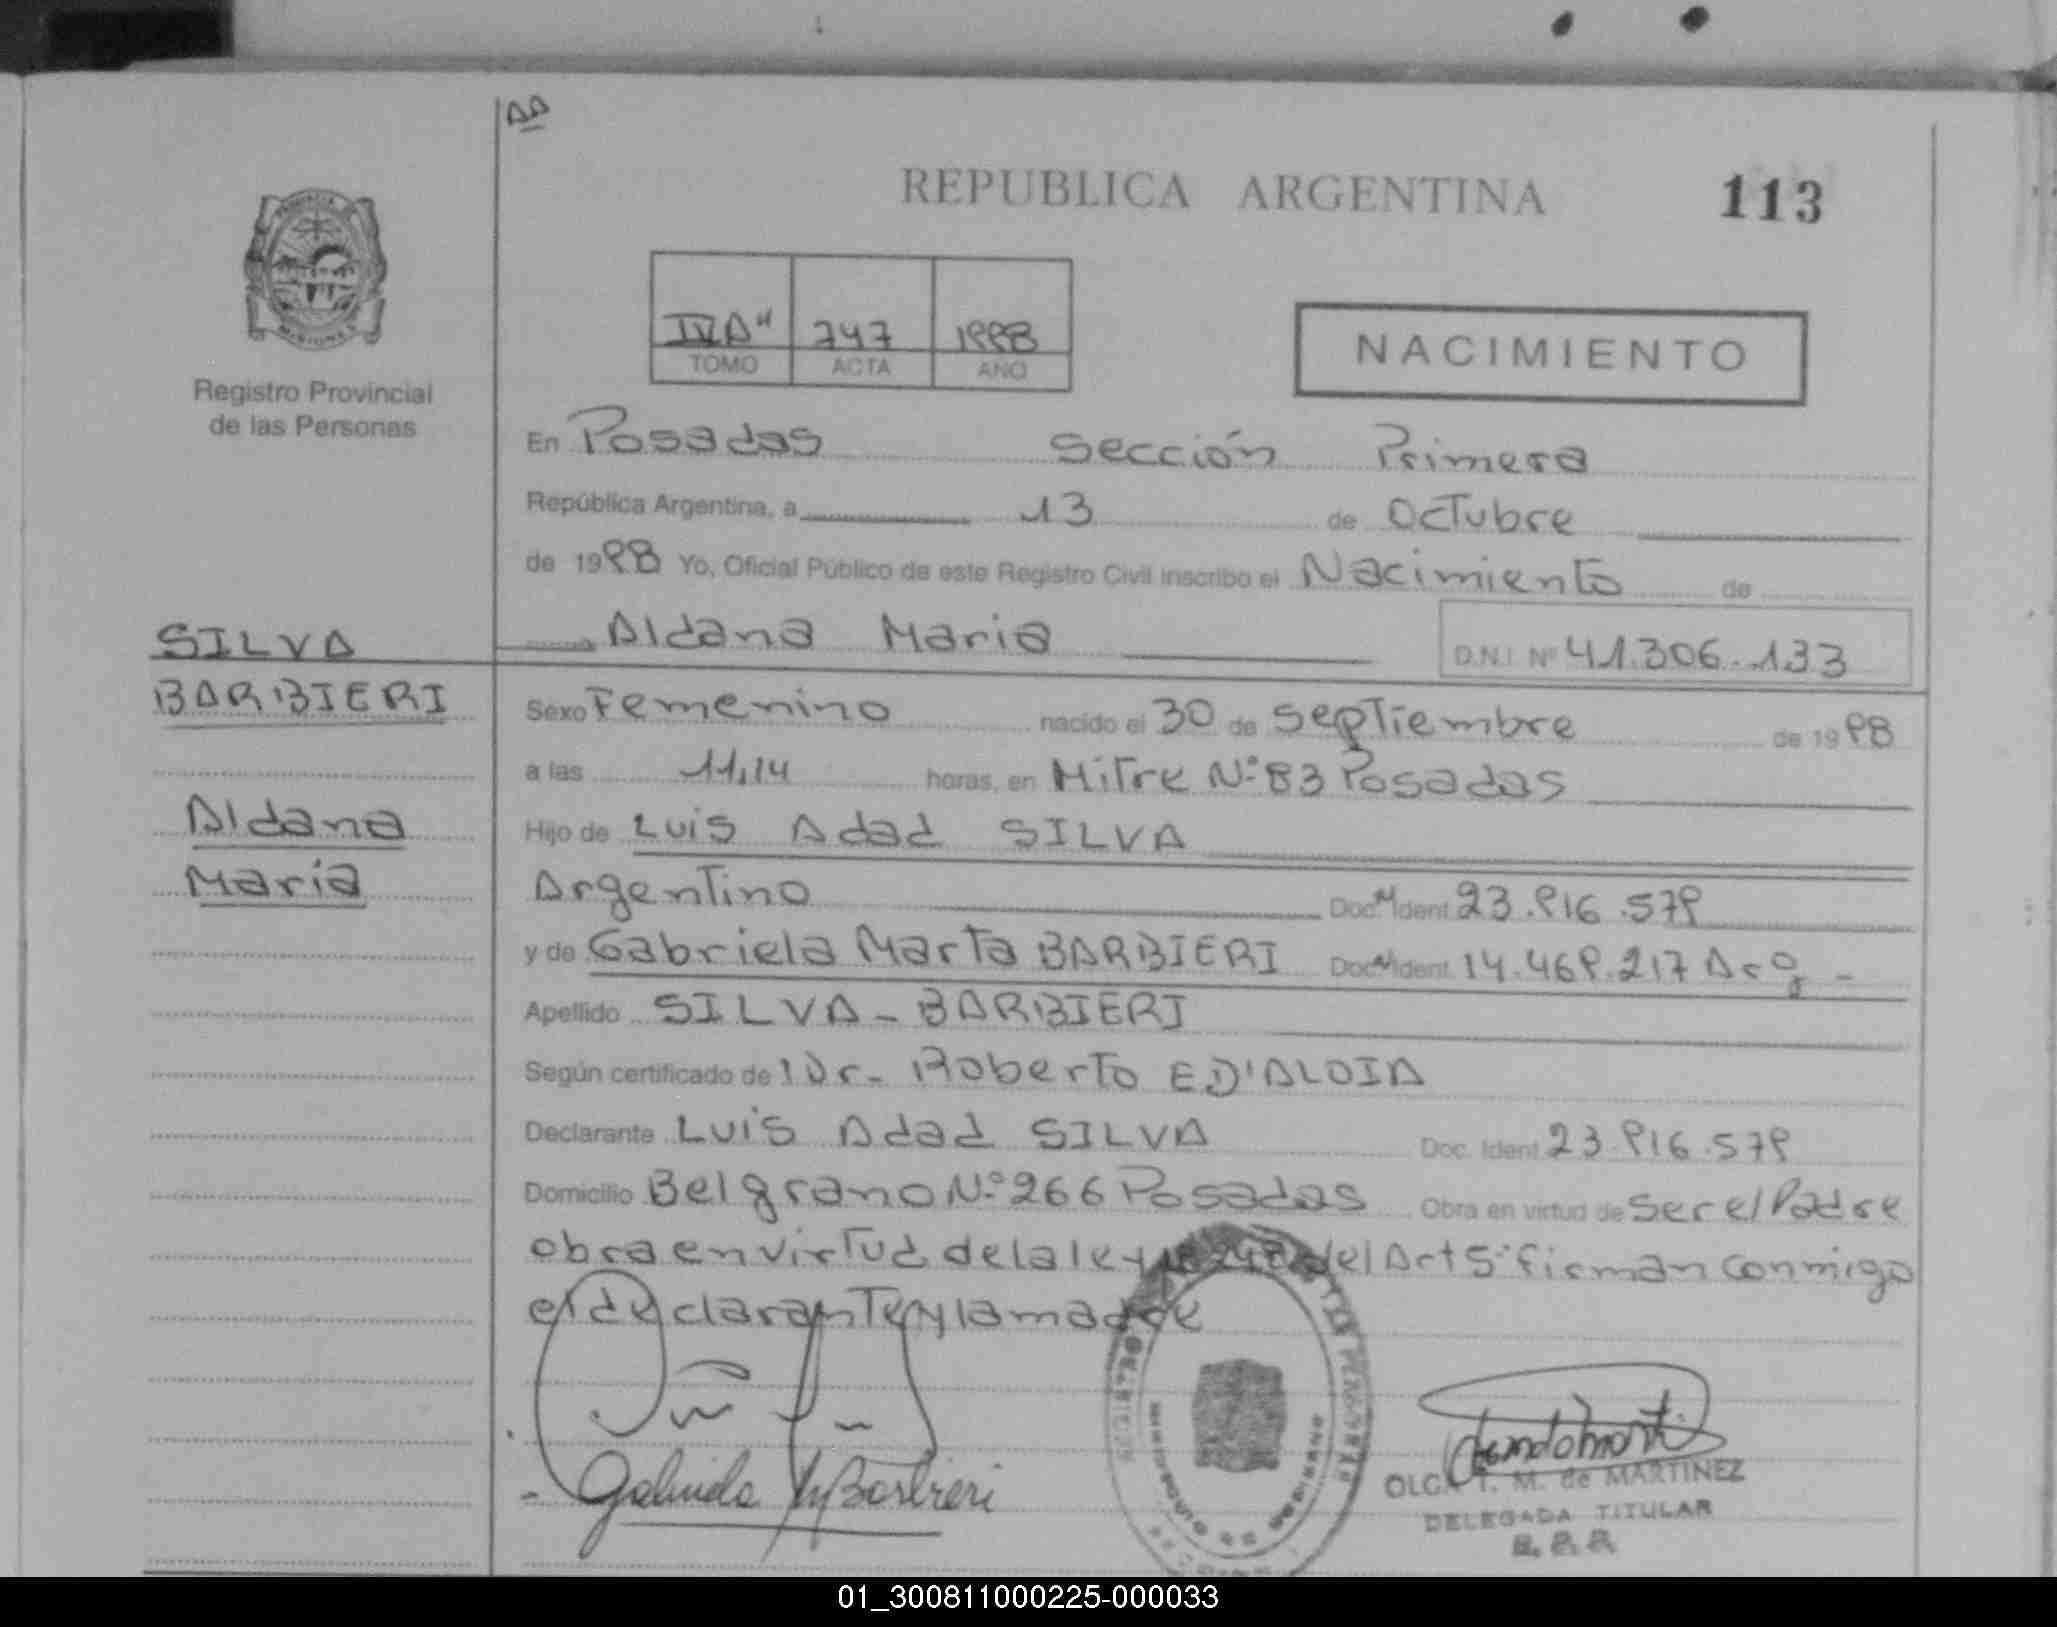 AA
REPUBLICA ARGENTINA 113
IVA" 747 1998
TOMO ACTA AÑO
NACIMIENTO
Registro Provincial
de las Personas
En Posadas Sección Primera
República Argentina, a 13 de Octubre
de 1998 Yo, Oficial Público de este Registro Civil inscribo el Nacimiento de
Aldana Maria D.N.I. Nº 41.306.133
SILVA
BARBIERI
Aldana
Maria
Sexo Femenino nacido el 30 de Septiembre de 1998
a las 11,14 horas, en Mitre Nº 83 Posadas
Hijo de Luis Adad SILVA
Argentino Doc. Ident. 23.916.579
y de Gabriela Marta BARBIERI Doc. Ident. 14.469.217 Arg -
Apellido SILVA - BARBIERI
Según certificado de Dr. Roberto E D'ALOIA
Declarante Luis Adad SILVA Doc. Ident. 23.916.579
Domicilio Belgrano Nº 266 Posadas Obra en virtud de ser el Padre
obra en virtud de la ley del Art 5º firman conmigo
el declarante y la madre
Gabriela M Barbieri
OLGA T. M. de MARTINEZ
DELEGADA TITULAR
01_300811000225-000033